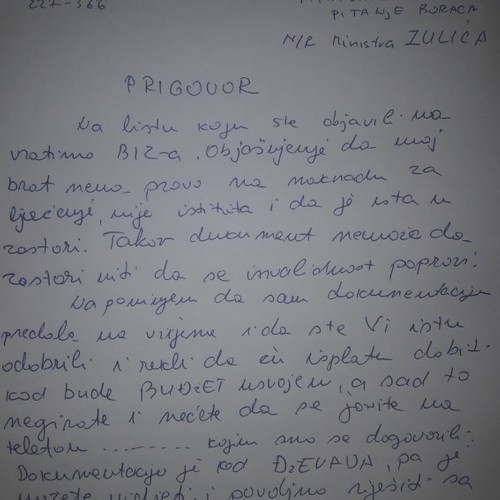 227-366
PITANJE BORACA
N/R Ministra ZULIĆA
PRIGOVOR
Na listu koju ste objavili na
vratima BIZ-a. Objašnjenje da moj
brat nema pravo na naknadu za
liječenje, nije istinita i da je ista u
zastari. Takav dukument nemože da
zastari niti da se invalidnost popravi.
Napominjem da sam dokumentaciju
predala na vrijeme i da ste Vi istu
odobrili i rekli da ću isplatu dobit
kad bude BUDžET usvojen, a sad to
negirate i nećete da se javite na
telefon ......... kojim smo se dogovorili.
Dokumentacija je kod DžEVADA, pa je
možete vidjeti i povoljno riješiti sa